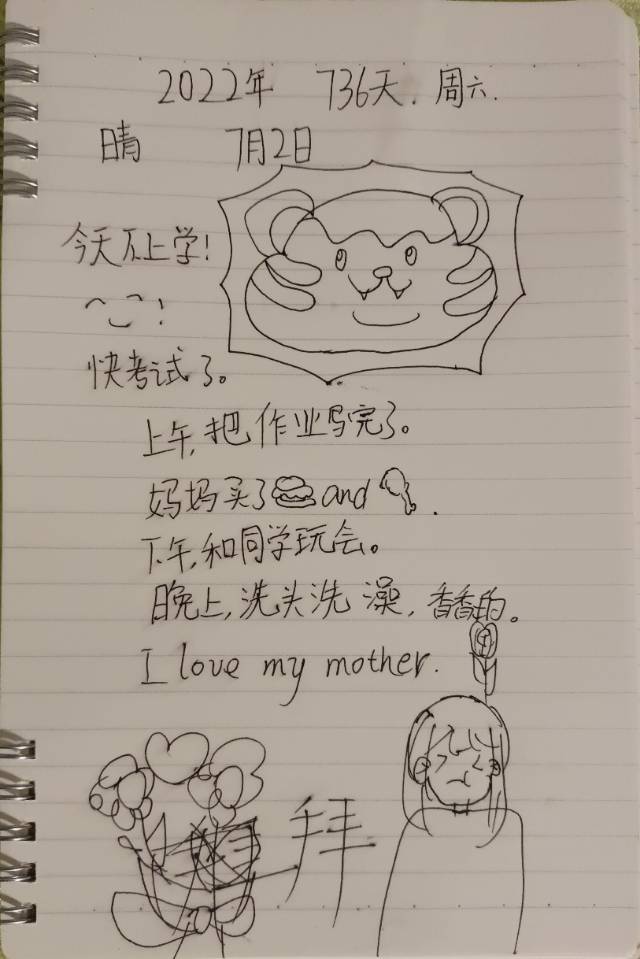 2022年 736天. 周六.
晴 7月2日
今天不上学!
快考试了。
上午,把作业写完了。
妈妈买了 and .
下午,和同学玩会。
晚上,洗头洗澡,香香的。
I love my mother.
拜